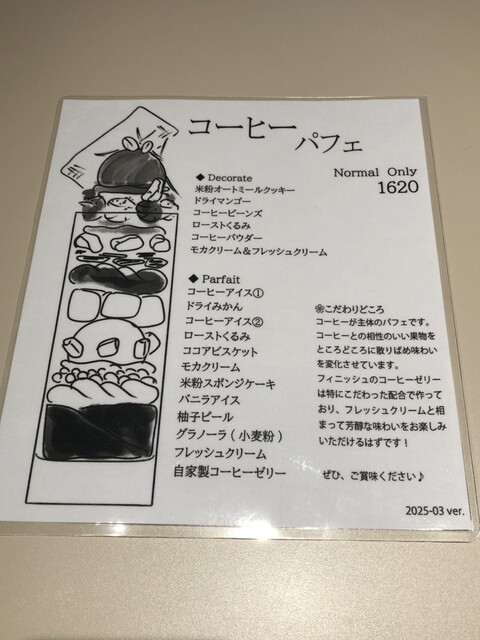 コーヒー
パフェ
Normal Only
1620
◆ Decorate
米粉オートミールクッキー
ドライマンゴー
コーヒービーンズ
ローストくるみ
コーヒーパウダー
モカクリーム＆フレッシュクリーム
◆ Parfait
コーヒーアイス①
ドライみかん
コーヒーアイス②
ローストくるみ
ココアビスケット
モカクリーム
米粉スポンジケーキ
バニラアイス
柚子ピール
グラノーラ ( 小麦粉 )
フレッシュクリーム
自家製コーヒーゼリー
❀こだわりどころ
コーヒーが主体のパフェです。
コーヒーとの相性のいい果物を
ところどころに散りばめ味わい
を変化させています。
フィニッシュのコーヒーゼリー
は特にこだわった配合で作って
おり、フレッシュクリームと相
まって芳醇な味わいをお楽しみ
いただけるはずです！
ぜひ、ご賞味ください♪
2025-03 ver.